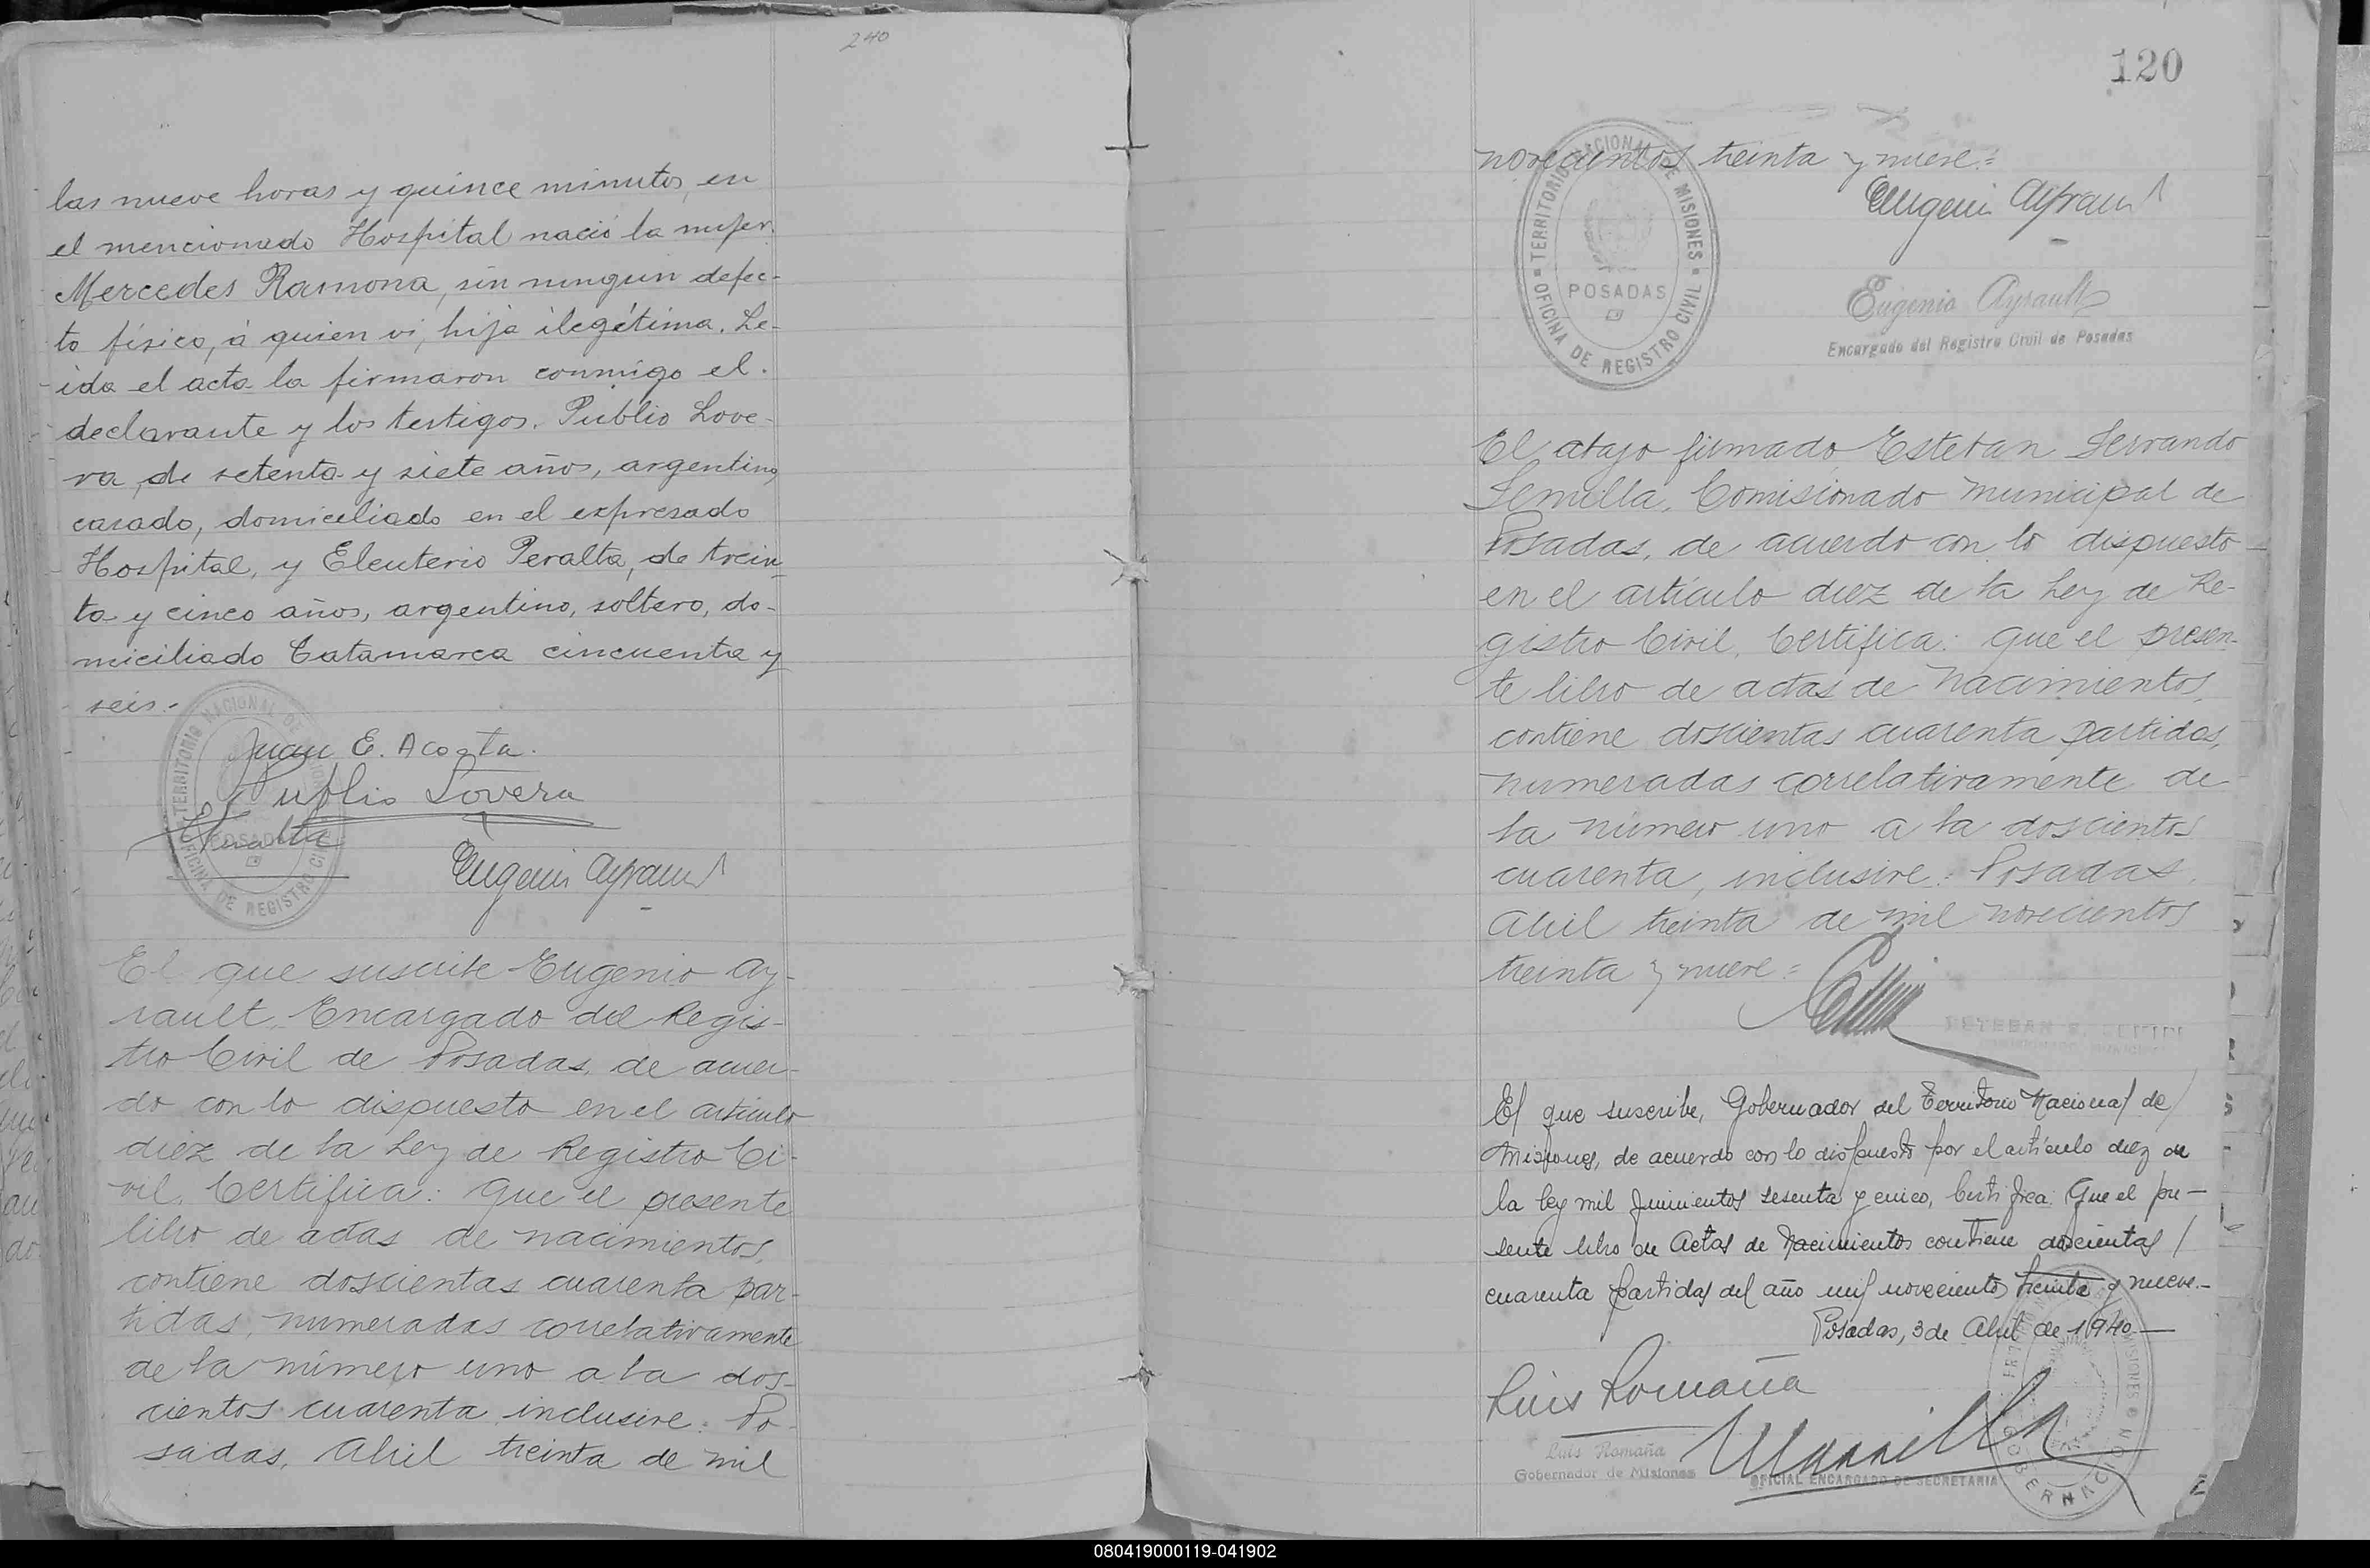 240
las nueve horas y quince minutos, en
el mencionado Hospital nació la mujer
Mercedes Ramona, sin ningun defec-
to físico, á quien vi, hija ilegítima. Le-
ida el acta la firmaron conmigo el
declarante y los testigos. Publio Love-
ra, de setenta y siete años, argentino,
casado, domiciliado en el expresado
Hospital, y Eleuterio Peralta, de trein-
ta y cinco años, argentino, soltero, do-
miciliado Catamarca cincuenta y
seis.-
Juan E. Acosta.
Publio Lovera
EPeralta
Eugenio Ayrault
TERRITORIO NACIONAL DE MISIONES
POSADAS
OFICINA DE REGISTRO CIVIL
El que suscribe Eugenio Ay-
rault, Encargado del Regis-
tro Civil de Posadas, de acuer-
do con lo dispuesto en el artículo
diez de la Ley de Registro Ci-
vil, Certifica: Que el presente
libro de actas de nacimientos,
contiene doscientas cuarenta par-
tidas, numeradas correlativamente
de la número uno a la dos-
cientos cuarenta, inclusive: Po-
sadas, Abril treinta de mil
120
novecientos treinta y nueve=
Eugenio Ayrault
TERRITORIO NACIONAL DE MISIONES
POSADAS
OFICINA DE REGISTRO CIVIL
Eugenio Ayrault
Encargado del Registro Civil de Posadas
El abajo firmado Esteban Serrando
Semilla, Comisionado Municipal de
Posadas, de acuerdo con lo dispuesto
en el artículo diez de la Ley de Re-
gistro Civil, Certifica: Que el presen-
te libro de actas de Nacimientos,
contiene doscientas cuarenta partidas,
numeradas correlativamente de
la número uno a la doscientos
cuarenta, inclusive: Posadas,
Abril treinta de mil novecientos
treinta y nueve=
ESTEBAN S.
El que suscribe, Gobernador del Territorio Nacional de
Misiones, de acuerdo con lo dispuesto por el artículo diez de
la ley mil quinientos sesenta y cinco, Certifica: Que el pre-
sente libro de Actas de Nacimientos contiene doscientas
cuarenta partidas del año mil novecientos treinta y nueve.-
Posadas, 3 de Abril de 1940
Luis Romaña
Luis Romaña
Gobernador de Misiones
OFICIAL ENCARGADO DE SECRETARIA
GOBERNACION
MISIONES
080419000119-041902